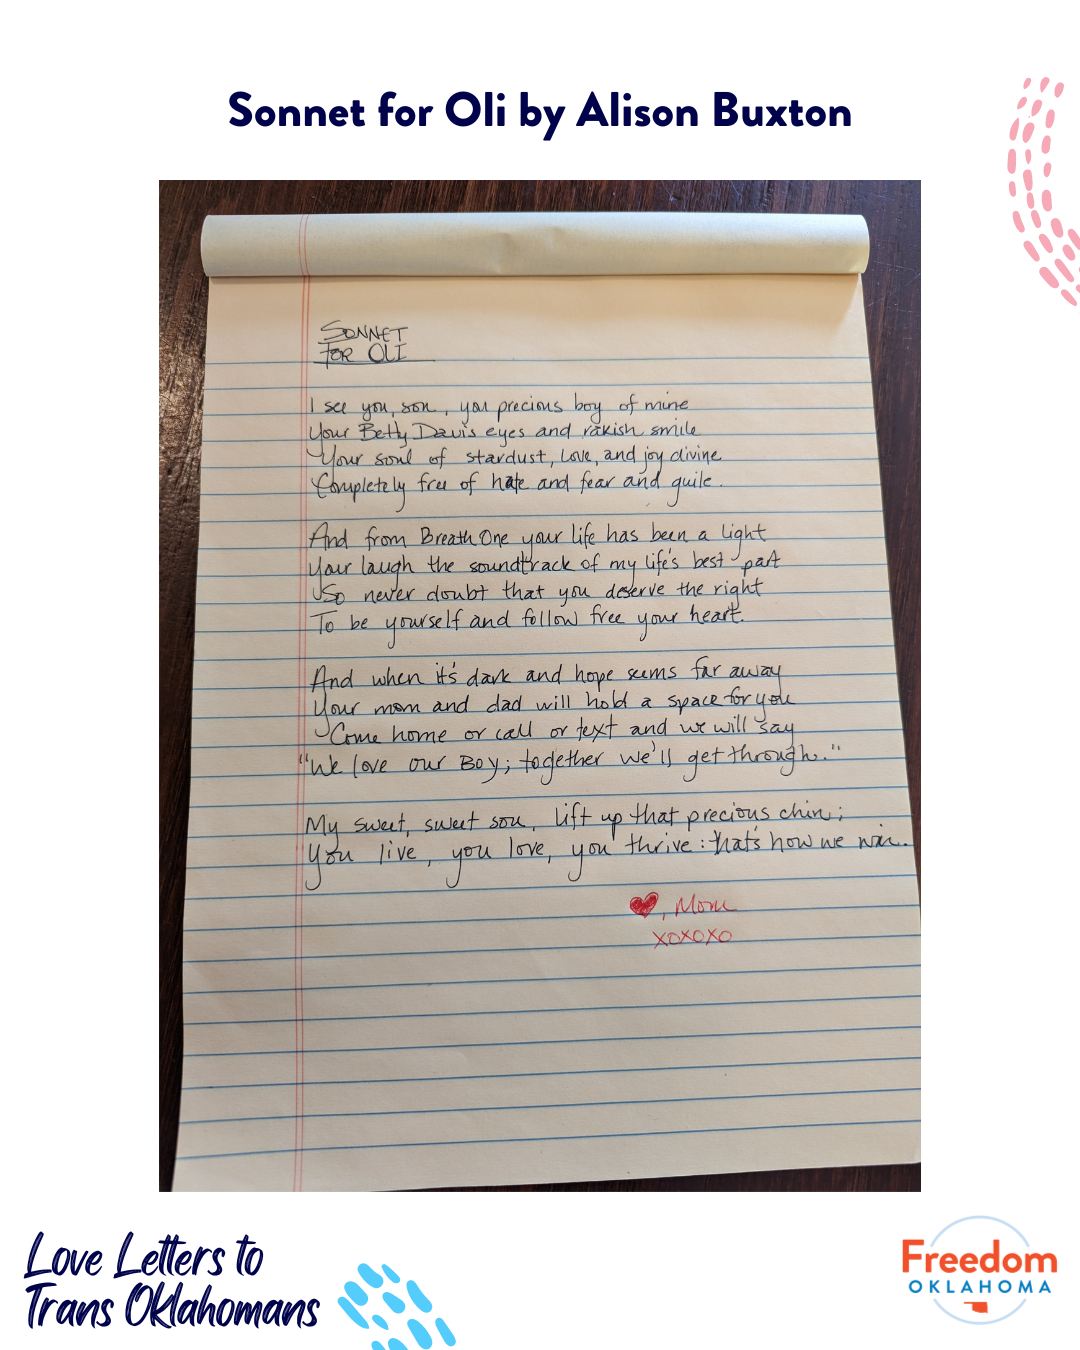 Sonnet for Oli by Alison Buxton
SONNET
FOR OLI
I see you, son, you precious boy of mine
Your Betty Davis eyes and rakish smile
Your soul of stardust, love, and joy divine
Completely free of hate and fear and guile.
And from Breath One your life has been a light
Your laugh the soundtrack of my life's best part
So never doubt that you deserve the right
To be yourself and follow free your heart.
And when it's dark and hope seems far away
Your mom and dad will hold a space for you
Come home or call or text and we will say
"We love our Boy; together we'll get through."
My sweet, sweet son, lift up that precious chin;
You live, you love, you thrive: that's how we win.
♥, Mom
XOXOXO
Love Letters to
Trans Oklahomans
Freedom
OKLAHOMA